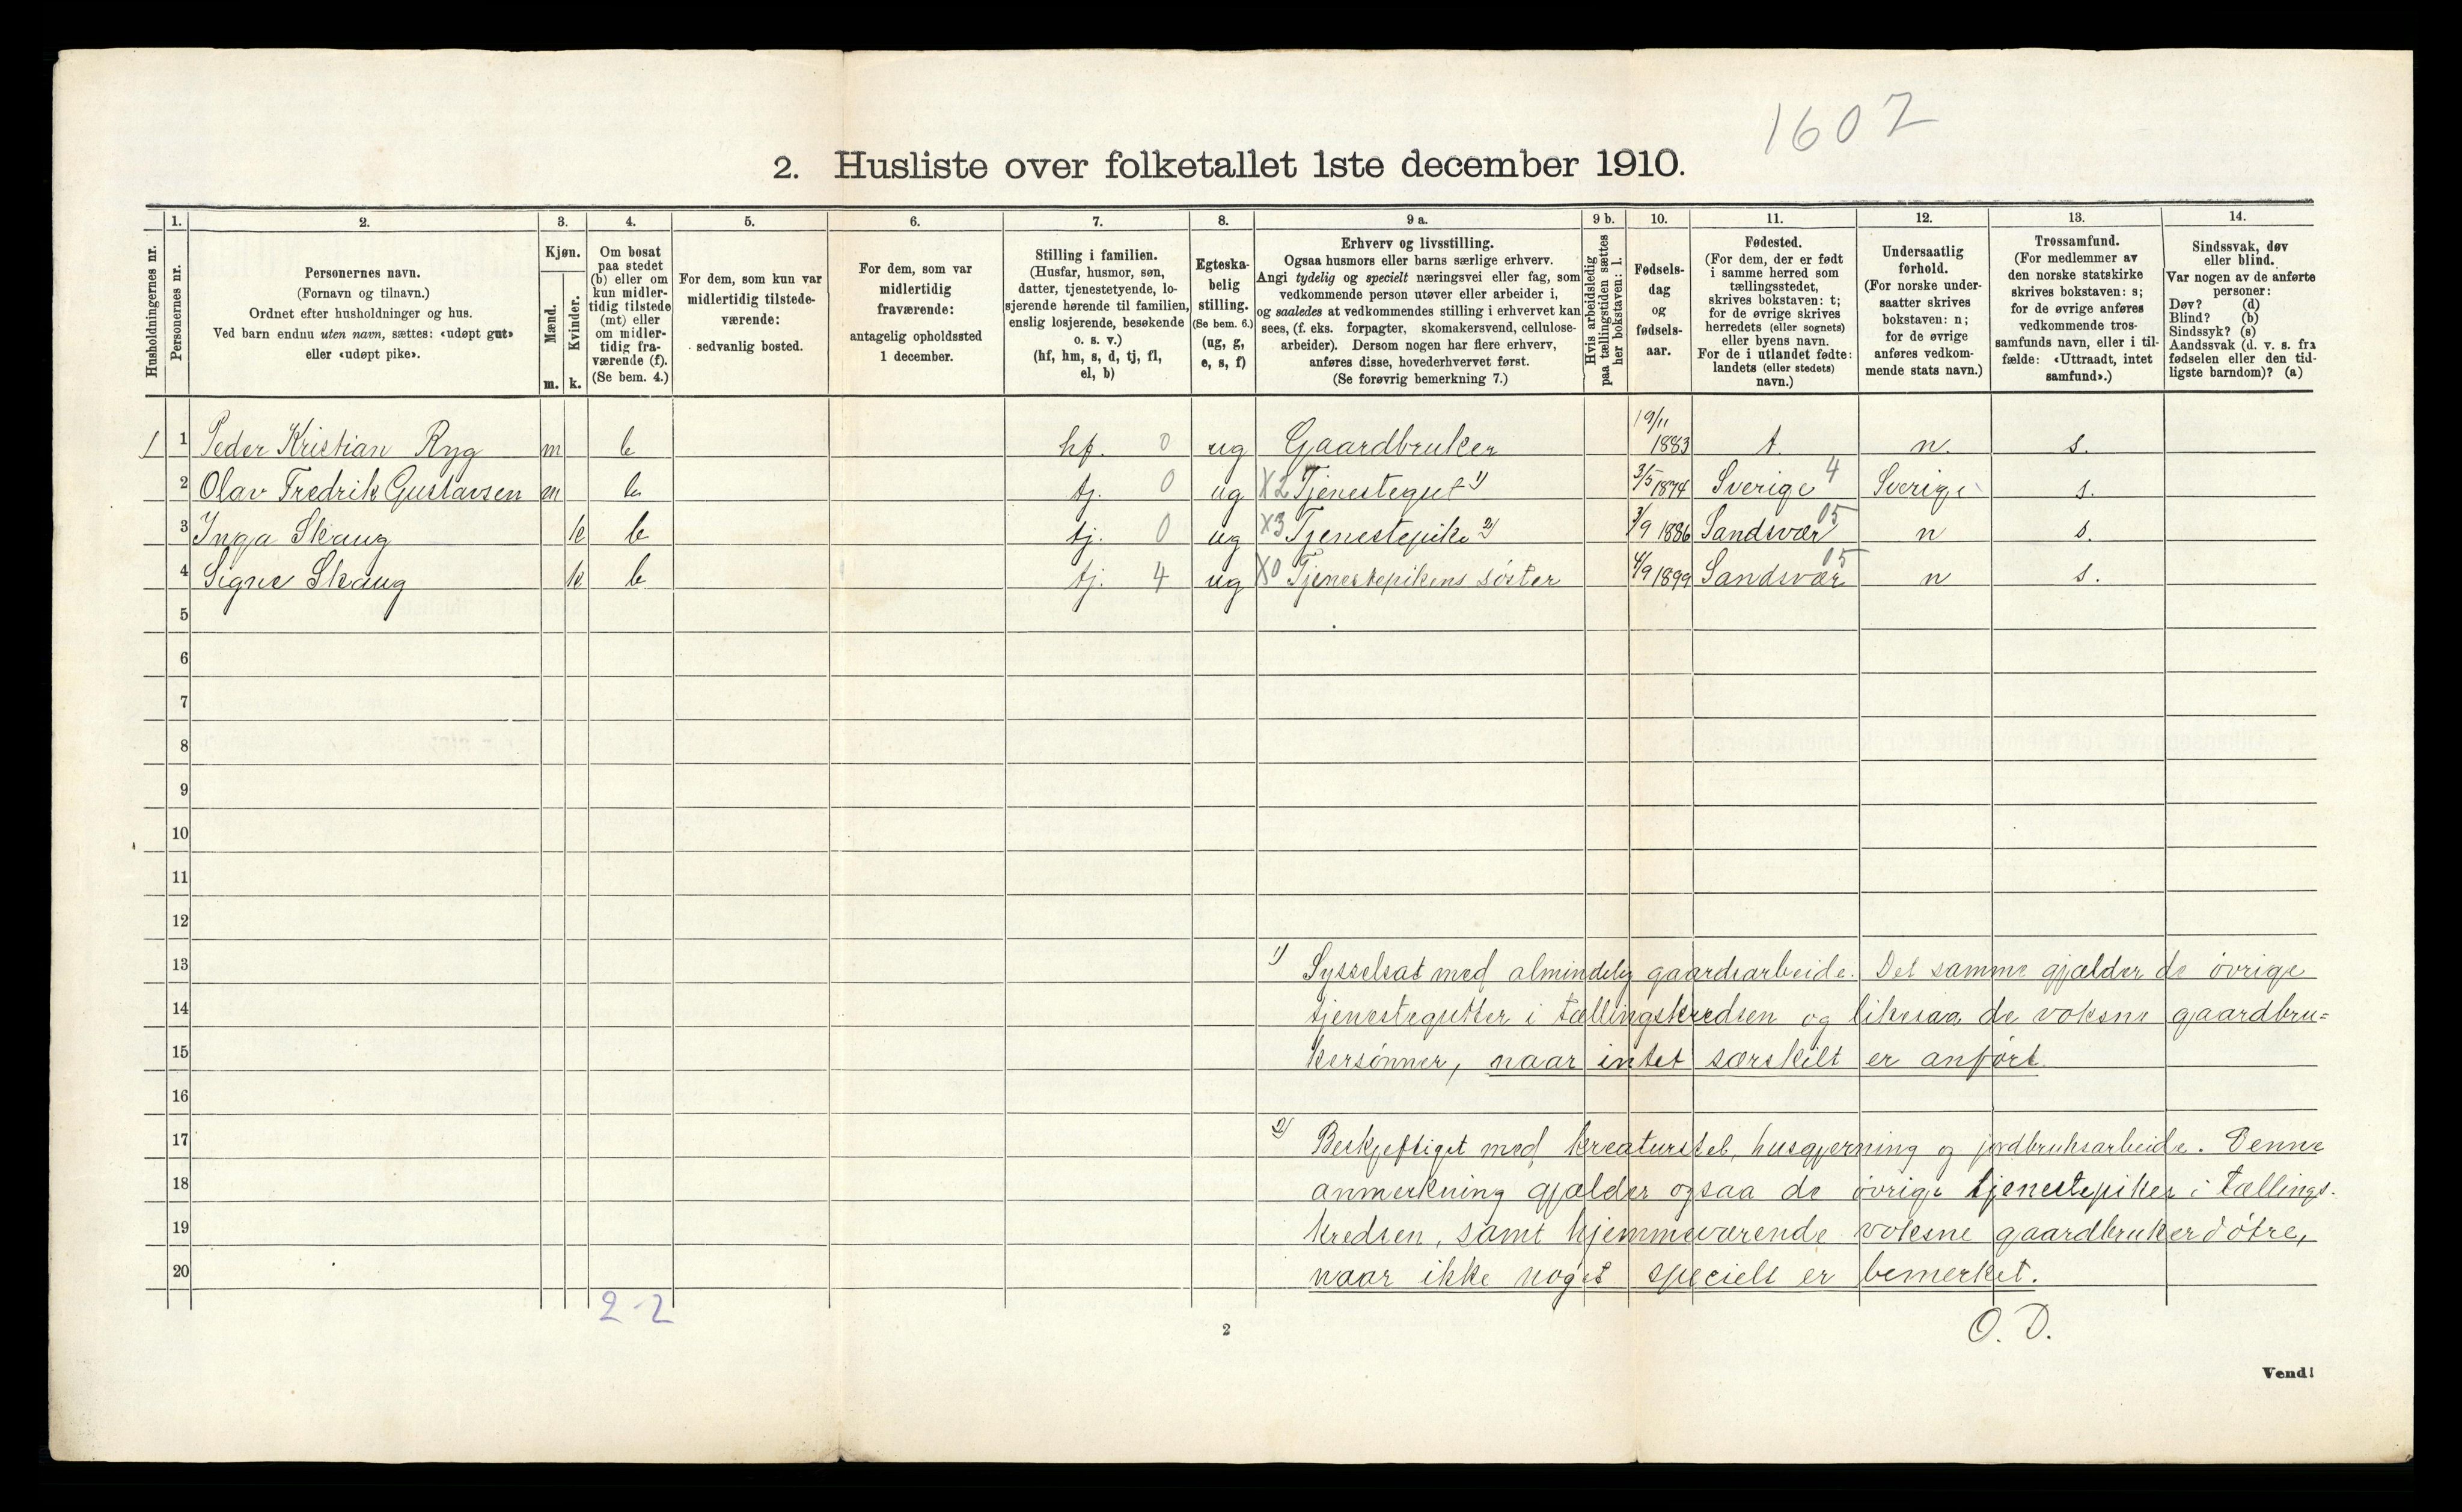 1602
2. Husliste over folketallet 1ste december 1910.
Husholdningernes nr.
1.
Personernes nr.
2.
Personernes navn.
(Fornavn og tilnavn.)
Ordnet efter husholdninger og hus.
Ved barn endnu uten navn, sættes: «udøpt gut»
eller «udøpt pike».
3.
Kjøn.
Mænd.
Kvinder.
m. k.
4.
Om bosat
paa stedet
(b) eller om
kun midler-
tidig tilstede
(mt) eller
om midler-
tidig fra-
værende (f).
(Se bem. 4.)
5.
For dem, som kun var
midlertidig tilstede-
værende:
sedvanlig bosted.
6.
For dem, som var
midlertidig
fraværende:
antagelig opholdssted
1 december.
7.
Stilling i familien.
(Husfar, husmor, søn,
datter, tjenestetyende, lo-
sjerende hørende til familien,
enslig losjerende, besøkende
o. s. v.)
(hf, hm, s, d, tj, fl,
el, b)
8.
Egteska-
belig
stilling.
(Se bem. 6.)
(ug, g,
e, s, f)
9 a.
Erhverv og livsstilling.
Ogsaa husmors eller barns særlige erhverv.
Angi tydelig og specielt næringsvei eller fag, som
vedkommende person utøver eller arbeider i,
og saaledes at vedkommendes stilling i erhvervet kan
sees, (f. eks. forpagter, skomakersvend, cellulose-
arbeider). Dersom nogen har flere erhverv,
anføres disse, hovederhvervet først.
(Se forøvrig bemerkning 7.)
9 b.
Hvis arbeidsledig
paa tællingstiden sættes
her bokstaven: l.
10.
Fødsels-
dag
og
fødsels-
aar.
11.
Fødested.
(For dem, der er født
i samme herred som
tællingsstedet,
skrives bokstaven: t;
for de øvrige skrives
herredets (eller sognets)
eller byens navn.
For de i utlandet fødte:
landets (eller stedets)
navn.)
12.
Undersaatlig
forhold.
(For norske under-
saatter skrives
bokstaven: n;
for de øvrige
anføres vedkom-
mende stats navn.)
13.
Trossamfund.
(For medlemmer av
den norske statskirke
skrives bokstaven: s;
for de øvrige anføres
vedkommende tros-
samfunds navn, eller i til-
fælde: «Uttraadt, intet
samfund».)
14.
Sindssvak, døv
eller blind.
Var nogen av de anførte
personer:
Døv? (d)
Blind? (b)
Sindssyk? (s)
Aandssvak (d. v. s. fra
fødselen eller den tid-
ligste barndom)? (a)
1 1 Peder Kristian Ryg m b hf. 0 ug Gaardbruker 19/11 1883 t. n. s.
2 Olav Fredrik Gustavsen m b tj. 0 ug X2 Tjenestegut 1) 3/5 1874 Sverige 4 Sverige s.
3 Inga Skaug k b tj. 0 ug X3 Tjenestepike 2) 3/9 1886 Sandsvær 05 n s.
4 Signe Skaug k b tj. 4 ug X0 Tjenestepikens søster 4/9 1899 Sandsvær 05 n s.
5
6
7
8
9
10
11
12
13 1) Sysselsat med almindelig gaardsarbeide. Det samme gjælder de øvrige
14 tjenestegutter i tællingskredsen og likesaa de voksne gaardbru=
15 kersønner, naar intet særskilt er anført.
16
17 2) Beskjeftiget med kreaturstel, husgjerning og jordbruksarbeide. Denne
18 anmerkning gjælder ogsaa de øvrige tjenestepiker i tællings-
19 kredsen, samt hjemmeværende voksne gaardbrukerdøtre,
20 naar ikke noget specielt er bemerket.
2 - 2
2
O. D.
Vend!